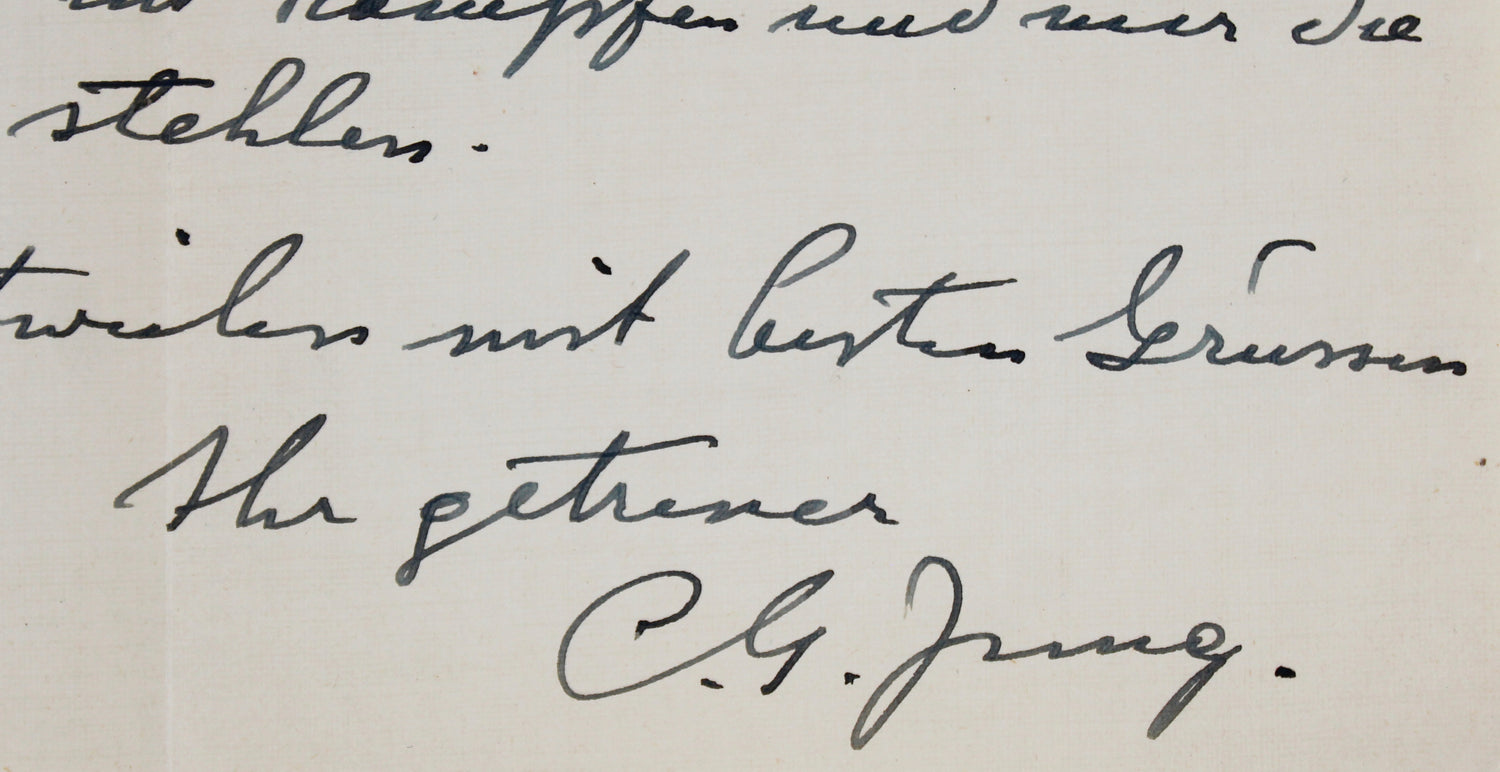 kämpfen und nur die
stehlen.
tweilen mit besten Grüssen
Ihr getreuer
C. G. Jung.